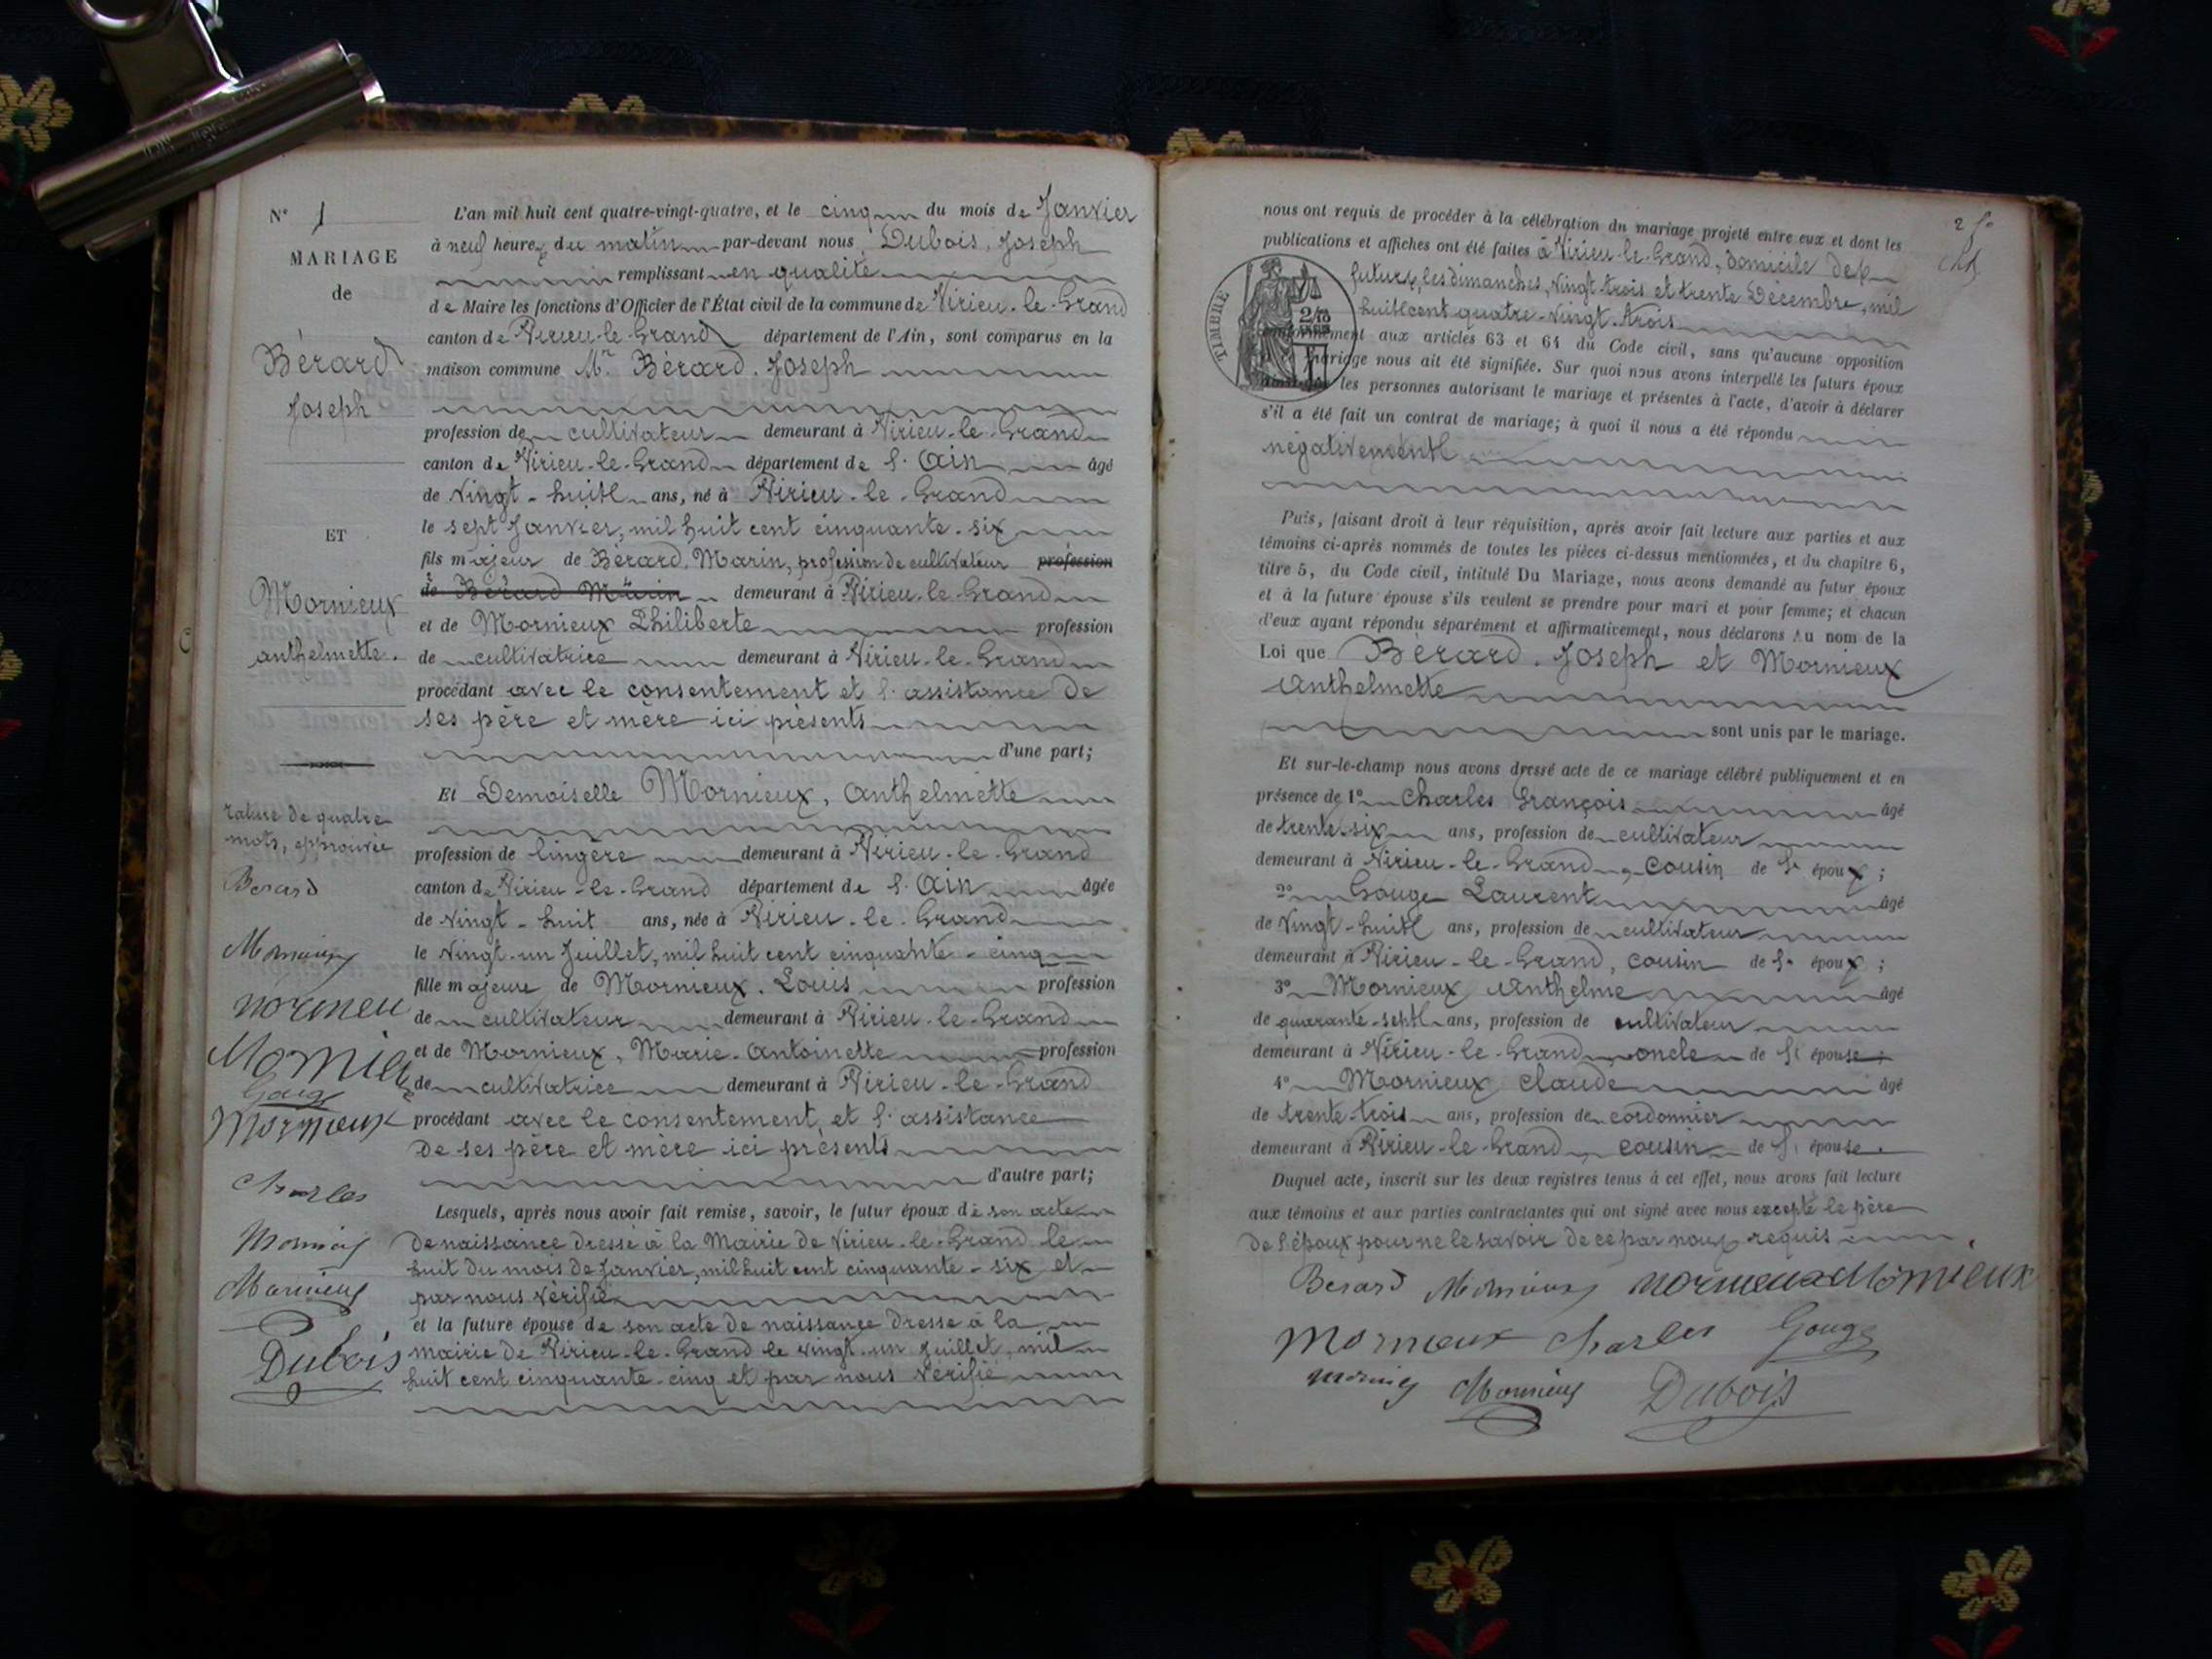 N° 1
MARIAGE
de
Bérard
Joseph
ET
Mornieux
anthelmette.
rature de quatre
mots, approuvée
Berard
Mornieux
Gouge
Mornieux
Charles
Mornieux
Dubois
L'an mil huit cent quatre-vingt-quatre, et le cinq du mois de Janvier
à neuf heures du matin par-devant nous, Dubois, Joseph
remplissant en qualité
de Maire les fonctions d'Officier de l'État civil de la commune de Virieu-le-Grand
canton de Virieu-le-Grand département de l'Ain, sont comparus en la
maison commune Mr Bérard, Joseph
profession de cultivateur demeurant à Virieu-le-Grand
canton de Virieu-le-Grand département de l'Ain âgé
de vingt-huit ans, né à Virieu-le-Grand
le sept Janvier, mil huit cent cinquante-six
fils majeur de Bérard, Marin, profession de cultivateur profession
de Bérard Marin demeurant à Virieu-le-Grand
et de Mornieux Philiberte profession
de cultivatrice demeurant à Virieu-le-Grand
procédant avec le consentement et l'assistance de
ses père et mère ici présents
d'une part;
Et Demoiselle Mornieux, Anthelmette
profession de lingère demeurant à Virieu-le-Grand
canton de Virieu-le-Grand département de l'Ain âgée
de vingt-huit ans, née à Virieu-le-Grand
le vingt-un Juillet, mil huit cent cinquante-cinq
fille majeure de Mornieux, Louis profession
de cultivateur demeurant à Virieu-le-Grand
et de Mornieux, Marie-Antoinette profession
de cultivatrice demeurant à Virieu-le-Grand
procédant avec le consentement, et l'assistance
de ses père et mère ici présents
d'autre part;
Lesquels, après nous avoir fait remise, savoir, le futur époux de son acte
de naissance dressé à la Mairie de Virieu-le-Grand le
huit du mois de Janvier, mil huit cent cinquante-six et
par nous vérifié
et la future épouse de son acte de naissance dressé à la
mairie de Virieu-le-Grand le vingt-un Juillet, mil
huit cent cinquante-cinq et par nous vérifié
2
nous ont requis de procéder à la célébration du mariage projeté entre eux et dont les
publications et affiches ont été faites à Virieu-le-Grand, domicile des
futurs, les dimanches, vingt trois et trente Décembre, mil
huit cent quatre-vingt-trois
TIMBRE
conformément aux articles 63 et 64 du Code civil, sans qu'aucune opposition
mariage nous ait été signifiée. Sur quoi nous avons interpellé les futurs époux
ainsi que les personnes autorisant le mariage et présentes à l'acte, d'avoir à déclarer
s'il a été fait un contrat de mariage; à quoi il nous a été répondu
négativement
Puis, faisant droit à leur réquisition, après avoir fait lecture aux parties et aux
témoins ci-après nommés de toutes les pièces ci-dessus mentionnées, et du chapitre 6,
titre 5, du Code civil, intitulé Du Mariage, nous avons demandé au futur époux
et à la future épouse s'ils veulent se prendre pour mari et pour femme; et chacun
d'eux ayant répondu séparément et affirmativement, nous déclarons Au nom de la
Loi que Bérard, Joseph et Mornieux
Anthelmette
sont unis par le mariage.
Et sur-le-champ nous avons dressé acte de ce mariage célébré publiquement et en
présence de 1° Charles François âgé
de trente-six ans, profession de cultivateur
demeurant à Virieu-le-Grand, cousin de l' époux;
2° Gouge Laurent âgé
de vingt-huit ans, profession de cultivateur
demeurant à Virieu-le-Grand, cousin de l' époux;
3° Mornieux Anthelme âgé
de quarante-sept ans, profession de cultivateur
demeurant à Virieu-le-Grand, oncle de l' épouse;
4° Mornieux Claude âgé
de trente-trois ans, profession de cordonnier
demeurant à Virieu-le-Grand, cousin de l' épouse.
Duquel acte, inscrit sur les deux registres tenus à cet effet, nous avons fait lecture
aux témoins et aux parties contractantes qui ont signé avec nous excepté le père
de l'époux pour ne le savoir de ce par nous requis
Berard Mornieux Mornieux
Mornieux Charles Gouge
Mornieux Dubois